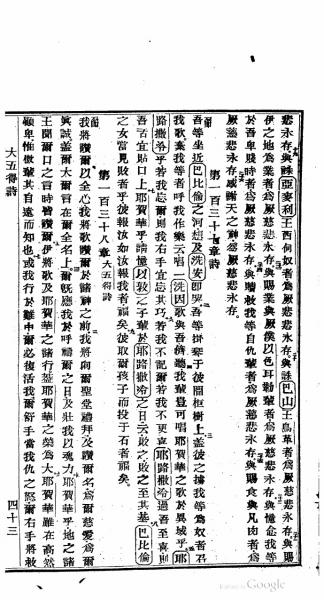 悲永存與誅亞麥利王西何奴者爲厥慈悲永存與誅巴山王烏革者爲厥慈悲永存與賜
伊之地爲業者爲厥慈悲永存與賜業與厥僕以色耳勒輩者爲厥慈悲永存與憶念我等
於吾卑賤時者爲厥慈悲永存與贖救我等自仇輩者爲厥慈悲永存與賜食與凡肉者爲
厥慈悲永存感謝天之神爲厥慈悲永存
第一百三十七章
吾等坐近巴比倫之河想及洗安卽哭吾等掛琴于彼間柜樹上蓋彼之擄我等爲奴者召
我歌棄我等者呼我作樂云唱一洗因歌與吾儕聽我輩豈可唱耶賀華之歌於異域乎耶
路撒冷乎若我忘爾則我右手宜忘其巧若我不記爾若我不更喜耶路撒冷過吾至喜則
吾舌宜貼口上耶賀華乎請憶以敦之子輩於耶路撒冷之日云敗之敗之至其基巴比倫
之女當見敗者乎彼報汝如汝報我者福矣彼取爾孩子而投于石者福矣
第一百三十八章大五得詩
我將讚爾以全心我將歌讚爾於諸神之前我將向爾聖堂禮拜及讚爾名爲爾慈愛爲爾
眞誠蓋爾大爾言在爾全名上爾旣應我於呼禱爾之日及壯我以魂力耶賀華乎地之諸
王聞爾口之言時皆讚爾伊將歌及耶賀華之諸行蓋耶賀華之榮爲大耶賀華雖在高然
顧卑惟傲輩其自遠而知也或我行於難中爾必復活我爾舒手當我仇之怒爾右手將救
大五得詩
四十三
Google